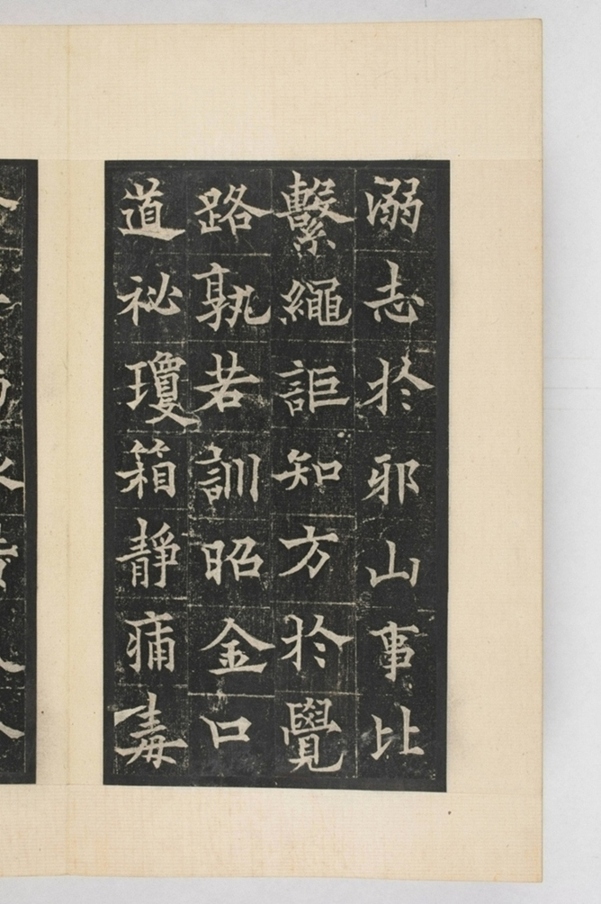 溺志於邪山事比
繫繩詎知方於覺
路孰若訓昭金口
道祕瓊箱靜痛毒